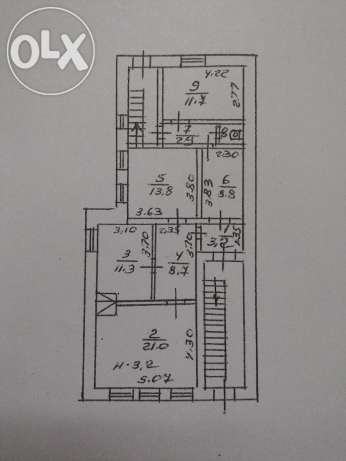 OLX
4.22
9
11.7
2.77
7
2.9
8
2.30
5
13.8
3.80
3.83
6
8.8
3.63
3.10
3.70
2.35
3.70
1
2.35
3
11.3
4
8.7
2
21.0
4.30
H-3,2
5.07